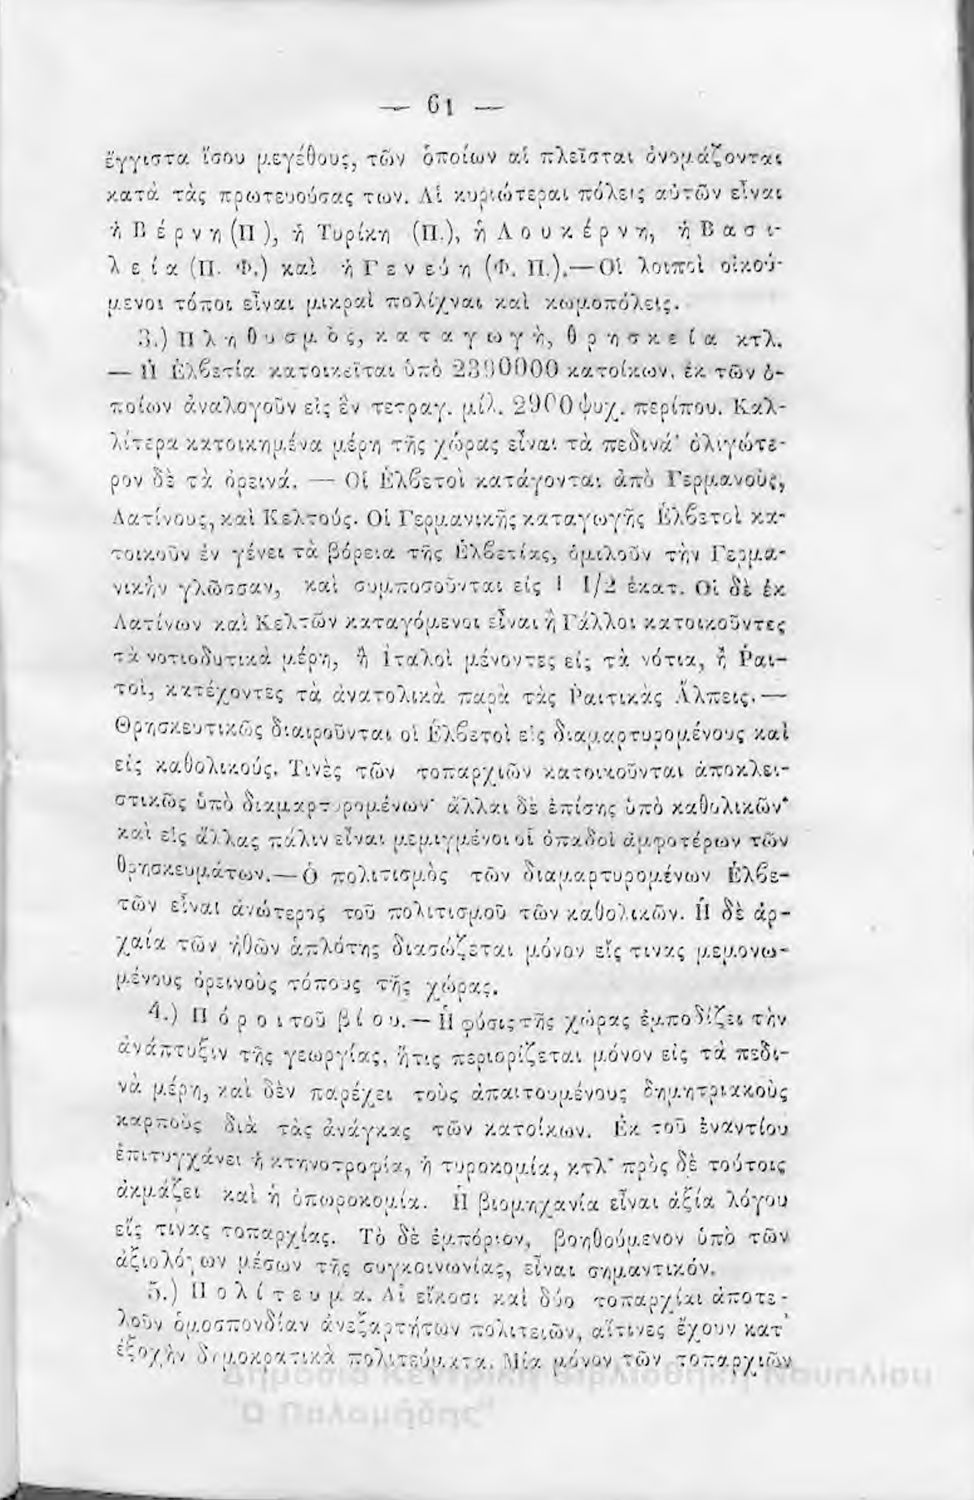 — 61 —
ἔγγιστα ἴσου μεγέθους, τῶν ὁποίων αἱ πλεῖσται ὀνομάζονται
κατὰ τὰς πρωτευούσας των. Αἱ κυριώτεραι πόλεις αὐτῶν εἶναι
ἡ Βέρνη (Π ), ἡ Τυρίκη (Π.), ἡ Λουκέρνη, ἡ Βασι-
λεία (Π. Φ.) καὶ ἡ Γενεύη (Φ. Π.).— Οἱ λοιποὶ οἰκού-
μενοι τόποι εἶναι μικραὶ πολίχναι καὶ κωμοπόλεις.
3.) Πληθυσμὸς, καταγωγὴ, θρησκεία κτλ.
— Ἡ Ἑλβετία κατοικεῖται ὑπὸ 2390000 κατοίκων, ἐκ τῶν ὁ-
ποίων ἀναλογοῦν εἰς ἓν τετραγ. μίλ. 2900 ψυχ. περίπου. Καλ-
λίτερα κατοικημένα μέρη τῆς χώρας εἶναι τὰ πεδινά· ὀλιγώτε-
ρον δὲ τὰ ὀρεινά. — Οἱ Ἑλβετοὶ κατάγονται ἀπὸ Γερμανοὺς,
Λατίνους, καὶ Κελτούς. Οἱ Γερμανικῆς καταγωγῆς Ἑλβετοὶ κα-
τοικοῦν ἐν γένει τὰ βόρεια τῆς Ἑλβετίας, ὁμιλοῦν τὴν Γερμα-
νικὴν γλῶσσαν, καὶ συμποσοῦνται εἰς 1 1/2 ἑκατ. Οἱ δὲ ἐκ
Λατίνων καὶ Κελτῶν καταγόμενοι εἶναι ἢ Γάλλοι κατοικοῦντες
τὰ νοτιοδυτικὰ μέρη, ἢ Ἰταλοὶ μένοντες εἰς τὰ νότια, ἢ Ῥαι-
τοὶ, κατέχοντες τὰ ἀνατολικὰ παρὰ τὰς Ῥαιτικὰς Ἄλπεις.—
Θρησκευτικῶς διαιροῦνται οἱ Ἑλβετοὶ εἰς διαμαρτυρομένους καὶ
εἰς καθολικούς. Τινὲς τῶν τοπαρχιῶν κατοικοῦνται ἀποκλει-
στικῶς ὑπὸ διαμαρτυρομένων· ἄλλαι δὲ ἐπίσης ὑπὸ καθολικῶν·
καὶ εἰς ἄλλας πάλιν εἶναι μεμιγμένοι οἱ ὀπαδοὶ ἀμφοτέρων τῶν
θρησκευμάτων.— Ὁ πολιτισμὸς τῶν διαμαρτυρομένων Ἑλβε-
τῶν εἶναι ἀνώτερος τοῦ πολιτισμοῦ τῶν καθολικῶν. Ἡ δὲ ἀρ-
χαία τῶν ἠθῶν ἁπλότης διασώζεται μόνον εἴς τινας μεμονω-
μένους ὀρεινοὺς τόπους τῆς χώρας.
4.) Πόροι τοῦ βίου.— Ἡ φύσις τῆς χώρας ἐμποδίζει τὴν
ἀνάπτυξιν τῆς γεωργίας, ἥτις περιορίζεται μόνον εἰς τὰ πεδι-
νὰ μέρη, καὶ δὲν παρέχει τοὺς ἀπαιτουμένους δημητριακοὺς
καρποὺς διὰ τὰς ἀνάγκας τῶν κατοίκων. Ἐκ τοῦ ἐναντίου
ἐπιτυγχάνει ἡ κτηνοτροφία, ἡ τυροκομία, κτλ· πρὸς δὲ τούτοις
ἀκμάζει καὶ ἡ ὀπωροκομία. Ἡ βιομηχανία εἶναι ἀξία λόγου
εἴς τινας τοπαρχίας. Τὸ δὲ ἐμπόριον, βοηθούμενον ὑπὸ τῶν
ἀξιολόγων μέσων τῆς συγκοινωνίας, εἶναι σημαντικόν.
5.) Πολίτευμα. Αἱ εἴκοσι καὶ δύο τοπαρχίαι ἀποτε-
λοῦν ὁμοσπονδίαν ἀνεξαρτήτων πολιτειῶν, αἵτινες ἔχουν κατ'
ἐξοχὴν δημοκρατικὰ πολιτεύματα. Μία μόνον τῶν τοπαρχιῶν
Δημόσια Κεντρική Βιβλιοθήκη Ναυπλίου
"Ο Παλαμήδης"